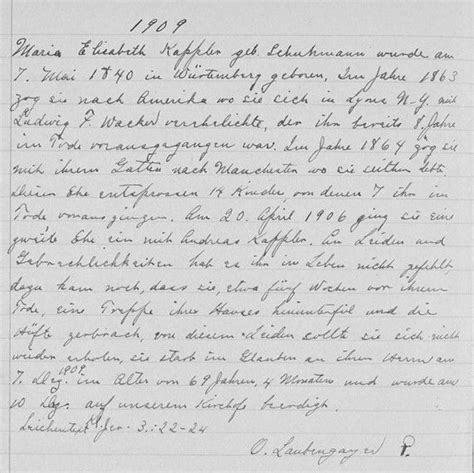 1909
Maria Elisabeth Kappler geb. Schuhmann wurde am
7. Mai 1840 in Würtemberg geboren, Im Jahre 1863
zog sie nach Amerika wo sie sich in Lyons N-Y. mit
Ludwig F. Wacker verehelichte, der ihr bereits 8 Jahre
im Tode vorausgegangen war. Im Jahre 1864 zog sie
mit ihrem Gatten nach Manchester wo sie seither lebte.
Dieser Ehe entsprossen 14 Kinder von denen 7 ihr im
Tode vorausgingen. Am 20. April 1906 ging sie eine
zweite Ehe ein mit Andreas Kappler. An Leiden und
Gebrechlichkeiten hat es ihr im Leben nicht gefehlt
dazu kam noch, dass sie, etwa fünf Wochen vor ihrem
Tode, eine Treppe ihres Hauses hinunterfiel und die
Hüfte zerbrach, von diesem Leiden sollte sie sich nicht
wieder erholen, sie starb im Glauben an ihren Herrn am
7. Dez. 1909 im Alter von 69 Jahren, 4 Monaten und wurde am
10 Dez. auf unserem Kirchhofe beerdigt.
Leichentext Jer. 3:22-24
O. Laubengayer P.